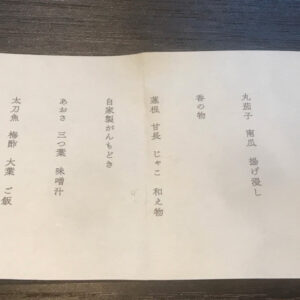 丸茄子 南瓜 揚げ浸し
香の物
蓮根 甘長 じゃこ 和え物
自家製がんもどき
あおさ 三つ葉 味噌汁
太刀魚 梅酢 大葉 ご飯